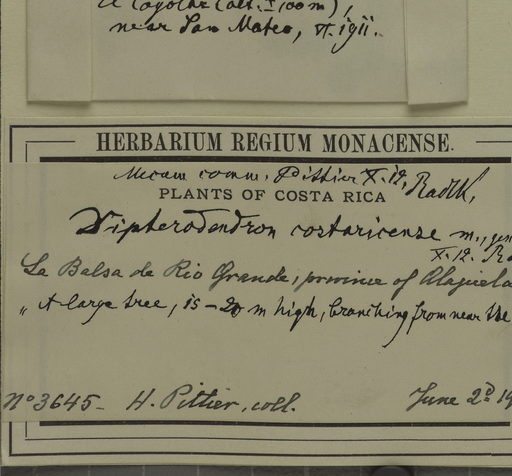 el Coyolar (alt. ± 100 m),
near San Mateo, VI. 1911.
HERBARIUM REGIUM MONACENSE.
Mecum comm. Pittier X. 12, Radlk,
PLANTS OF COSTA RICA
Dipterodendron costaricense m., gen
X. 12. Ra
La Balsa de Rio Grande, province of Alajuela
„ A large tree, 15-20 m high, branching from near the
No 3645- H. Pittier, coll. June 2d 19